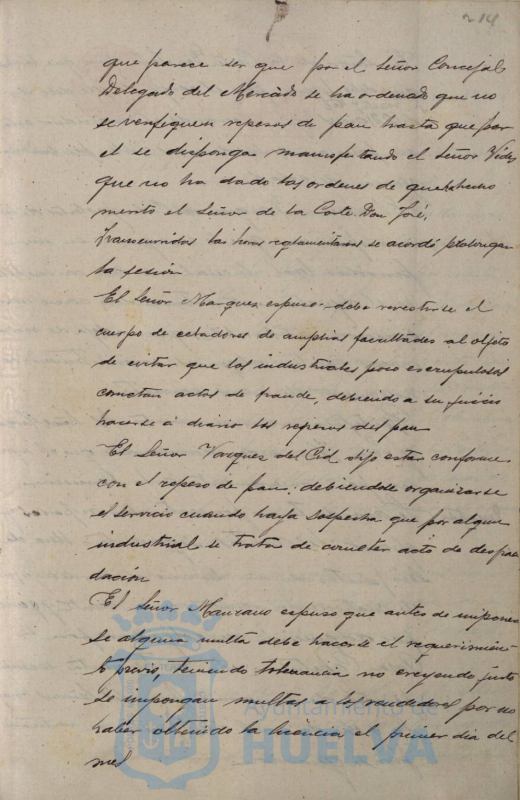 214
que parece ser que por el Señor Concejal
Delegado del Mercado se ha ordenado que no
se verifiquen repesos de pan hasta que por
el se disponga manifestando el Señor Vides
que no ha dado las ordenes de que ha hecho
merito el Señor de la Corte Don José,
Transcurridas las horas reglamentarias se acordó prolongar
la sesión
El Señor Marquez espuso debe revestirse el
cuerpo de celadores de amplias facultades al objeto
de evitar que los industriales poco escrupulosos
cometan actos de fraude, debiendo a su juicio
hacerse á diario los repesos del pan
El Señor Vazquez del Cid dijo estar conforme
con el repeso de pan, debiendose organizarse
el servicio cuando haya sospecha que por algun
industrial se trata de cometer acto de
dación
El Señor Manzano espuso que antes de imponer
se alguna multa debe hacerse el requerimien
to previo, teniendo tolerancia no creyendo justo
se impongan multas a los vendedores por no
haber obtenido la licencia el primer dia del
mes
Ayuntamiento de
HUELVA